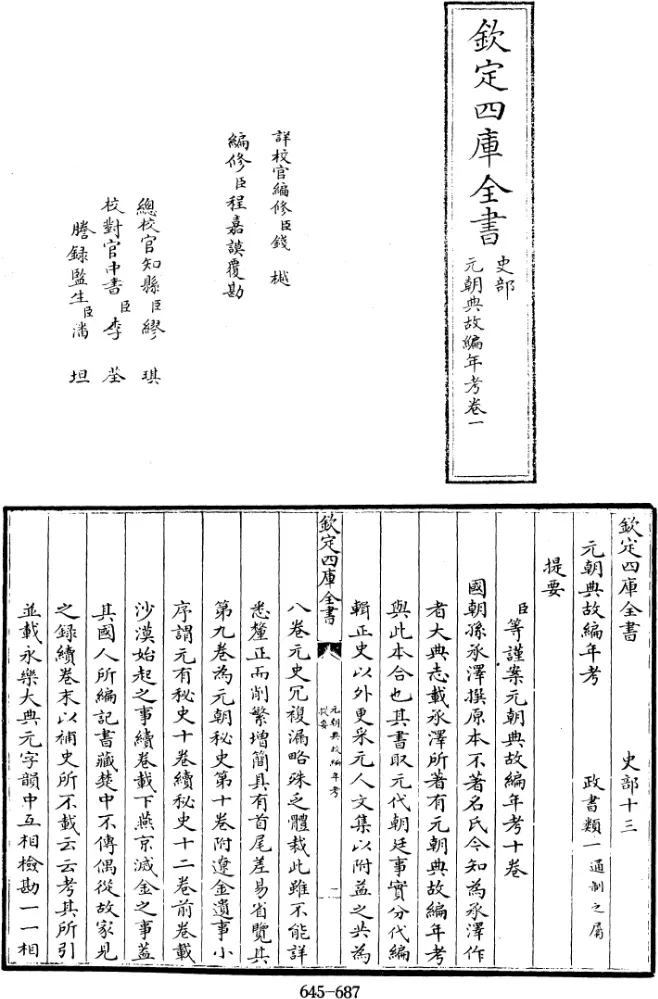 欽定四庫全書
史部
元朝典故編年考卷一
詳校官編修臣錢樾
編修臣程嘉謨覆勘
總校官知縣臣繆琪
校對官中書臣李荃
謄錄監生臣潘坦
欽定四庫全書
史部十三
元朝典故編年考
政書類一通制之屬
提要
臣等謹案元朝典故編年考十卷
國朝孫承澤撰原本不著名氏今知為承澤作
者大典志載承澤所著有元朝典故編年考
與此本合也其書取元代朝廷事實分代編
輯正史以外更采元人文集以附益之共為
欽定四庫全書
元朝典故編年考
提要
一
八卷元史冗複漏略殊乏體裁此雖不能詳
悉釐正而削繁增簡具有首尾差易省覽其
第九卷為元朝秘史第十卷附遼金遺事小
序謂元有秘史十卷續秘史十二卷前卷載
沙漠始起之事續卷載下燕京滅金之事蓋
其國人所編記書藏禁中不傳偶從故家見
之錄續卷末以補史所不載云云考其所引
並載永樂大典元字韻中互相檢勘一一相
645-687